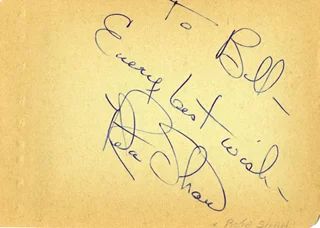 To Bill-
Every best wish-
Reta Shaw
Reta Shaw